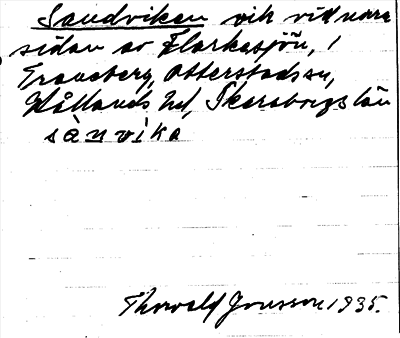 Sandviken vik vid norra
sidan av Flarkasjön, i
Traneberg, Otterstads sn,
Kållands hd, Skaraborgs län
sànvika
Thorvald Jonsson 1935.